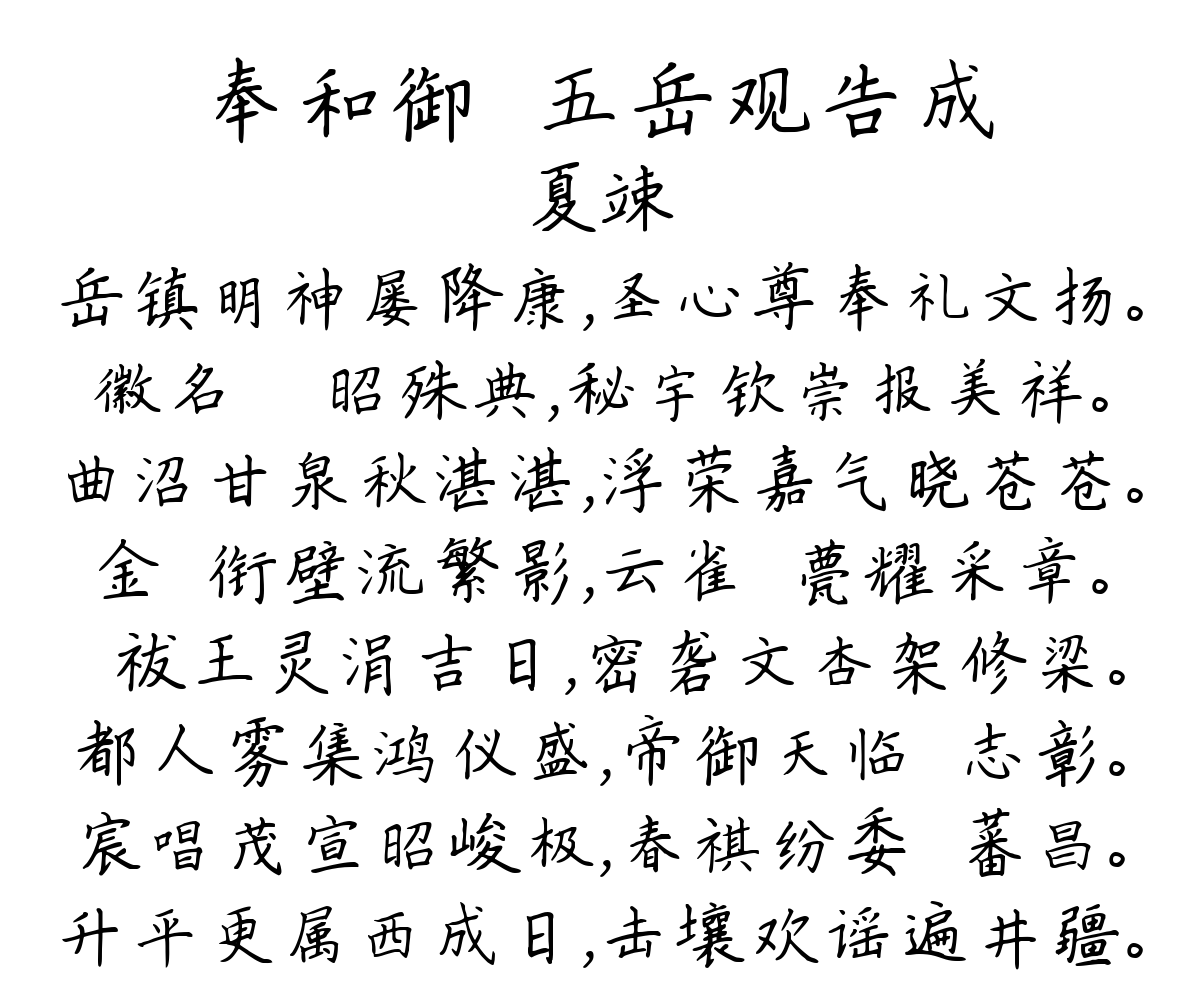 奉和御 五岳观告成
夏竦
岳镇明神屡降康,圣心尊奉礼文扬。
徽名 昭殊典,秘宇钦崇报美祥。
曲沼甘泉秋湛湛,浮荣嘉气晓苍苍。
金 衔壁流繁影,云雀 甍耀采章。
祓王灵涓吉日,密砻文杏架修梁。
都人雾集鸿仪盛,帝御天临 志彰。
宸唱茂宣昭峻极,春祺纷委 蕃昌。
升平更属西成日,击壤欢谣遍井疆。